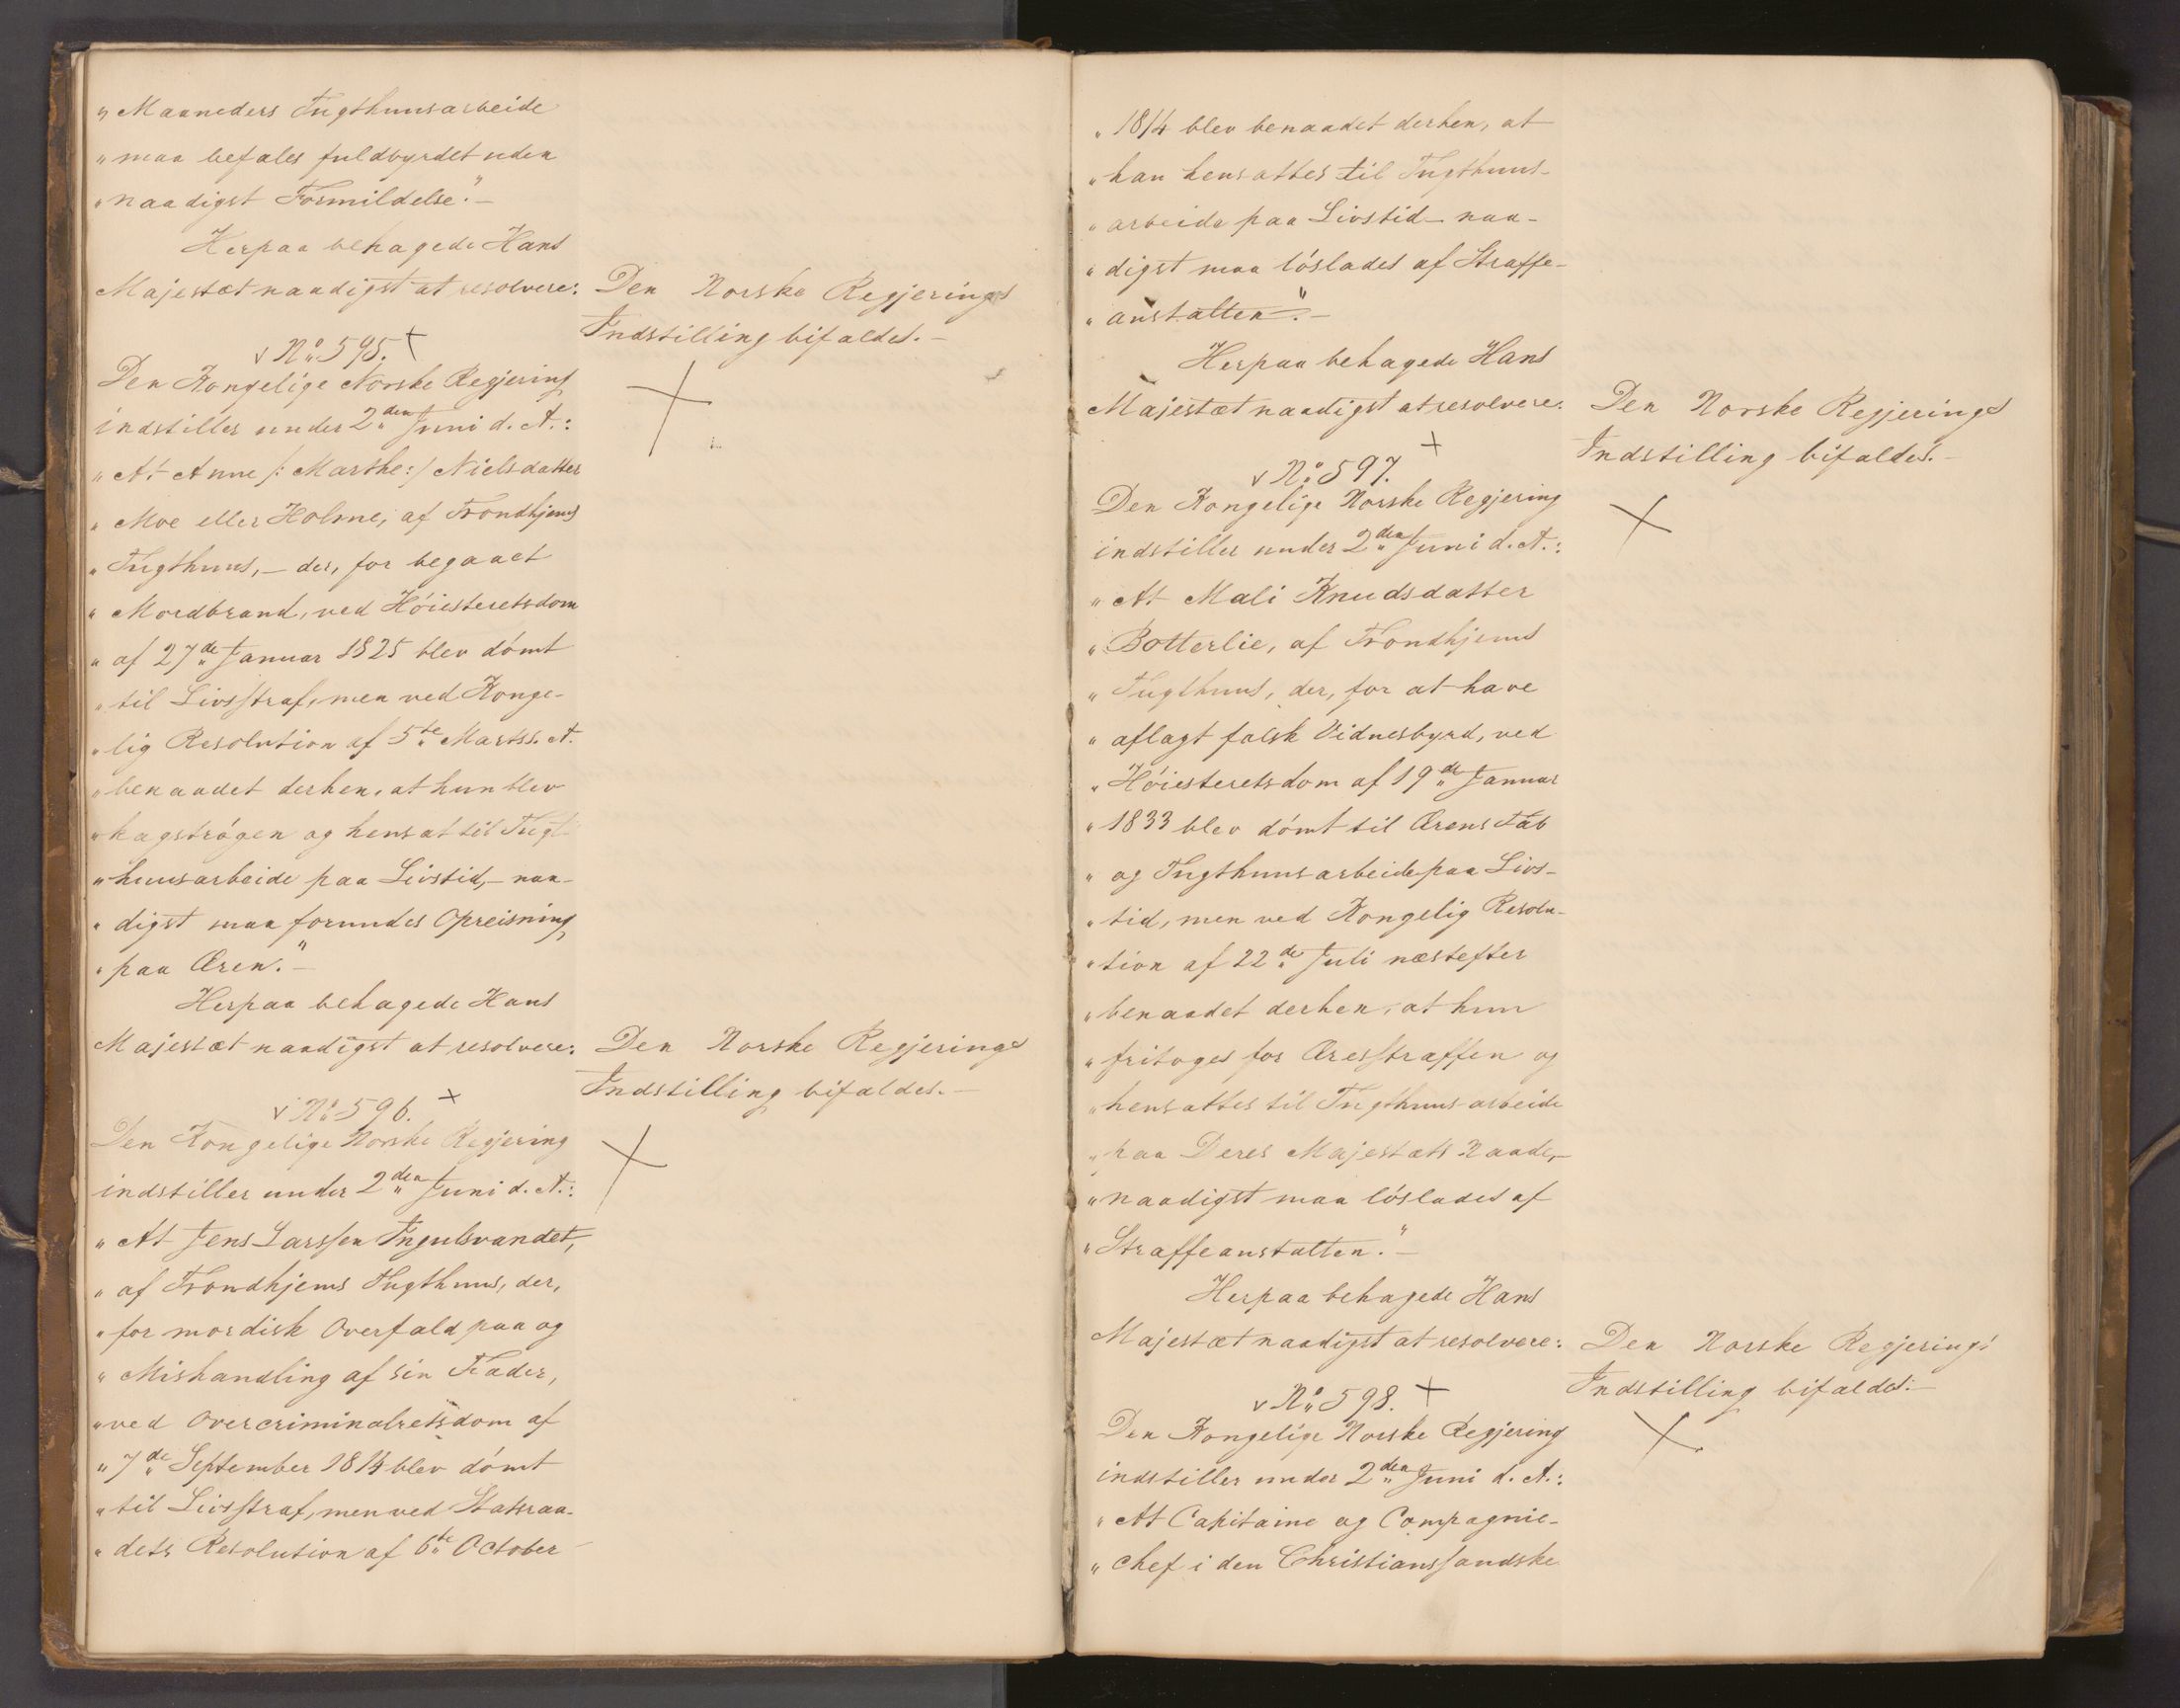 „Maaneders Tugthuusarbeide
„maa befales fuldbyrdet uden
„naadigst Formildelse." –
Herpaa behagede Hans
Majestæt naadigst at resolvere:
Den Norske Regjerings
Indstilling bifaldes. –
No. 595.
Den Kongelige Norske Regjering
indstiller under 2den Juni d. A.:
„At Anne /: Marthe:/ Nielsdatter
„Moe eller Holme, af Trondhjems
„Tugthuus, – der, for begaaet
„Mordbrand, ved Höiesteretsdom
„af 27de Januar 1825 blev dömt
„til Livsstraf, men ved Konge-
„lig Resolution af 5te Marts s. A.
„benaadet derhen, at hun blev
„kagströgen og hensat til Tugt-
„huusarbeide paa Livstid, – naa-
„digst maa forundes Opreisning
„paa Æren." –
Herpaa behagede Hans
Majestæt naadigst at resolvere:
Den Norske Regjerings
Indstilling bifaldes. –
No. 596.
Den Kongelige Norske Regjering
indstiller under 2den Juni d. A.:
„At Jens Larssen Ingulsvandet,
„af Trondhjems Tugthuus, der,
„for mordisk Overfald paa og
„Mishandling af sin Fader,
„ved Overcriminalretsdom af
„7de September 1814 blev dömt
„til Livsstraf, men ved Statsraa-
„dets Resolution af 6te October
„1814 blev benaadet derhen, at
„han hensattes til Tugthuus-
„arbeide paa Livstid – naa-
„digst maa löslades af Straffe-
„anstalten." –
Herpaa behagede Hans
Majestæt naadigst at resolvere:
Den Norske Regjerings
Indstilling bifaldes. –
No. 597.
Den Kongelige Norske Regjering
indstiller under 2den Juni d. A.:
„At Mali Knudsdatter
„Botterlie, af Trondhjems
„Tugthuus, der, for at have
„aflagt falsk Vidnesbyrd, ved
„Höiesteretsdom af 19de Januar
„1833 blev dömt til Ærens Tab
„og Tugthuusarbeide paa Livs-
„tid, men ved Kongelig Resolu-
„tion af 22de Juli næstefter
„benaadet derhen, at hun
„fritoges for Æresstraffen og
„hensattes til Tugthuus arbeide
„paa Deres Majestæts Naade, –
„naadigst maa löslades af
„Straffeanstalten." –
Herpaa behagede Hans
Majestæt naadigst at resolvere:
Den Norske Regjerings
Indstilling bifaldes. –
No. 598.
Den Kongelige Norske Regjering
indstiller under 2den Juni d. A.:
„At Capitaine og Compagnie-
„chef i den Christianssandske